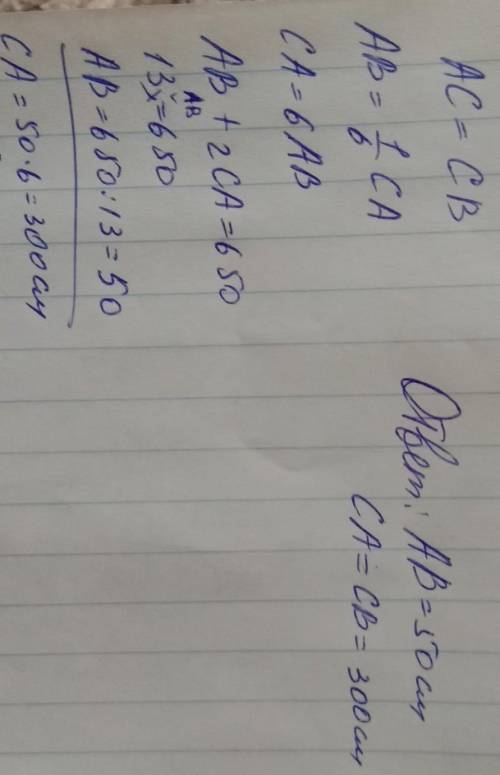 AC = CB
AB = 1/6 CA
CA = 6 AB
AB + 2CA = 650
AB
13x = 650
AB = 650 : 13 = 50
CA = 50 · 6 = 300 см
Ответ: AB = 50 см
CA = CB = 300 см